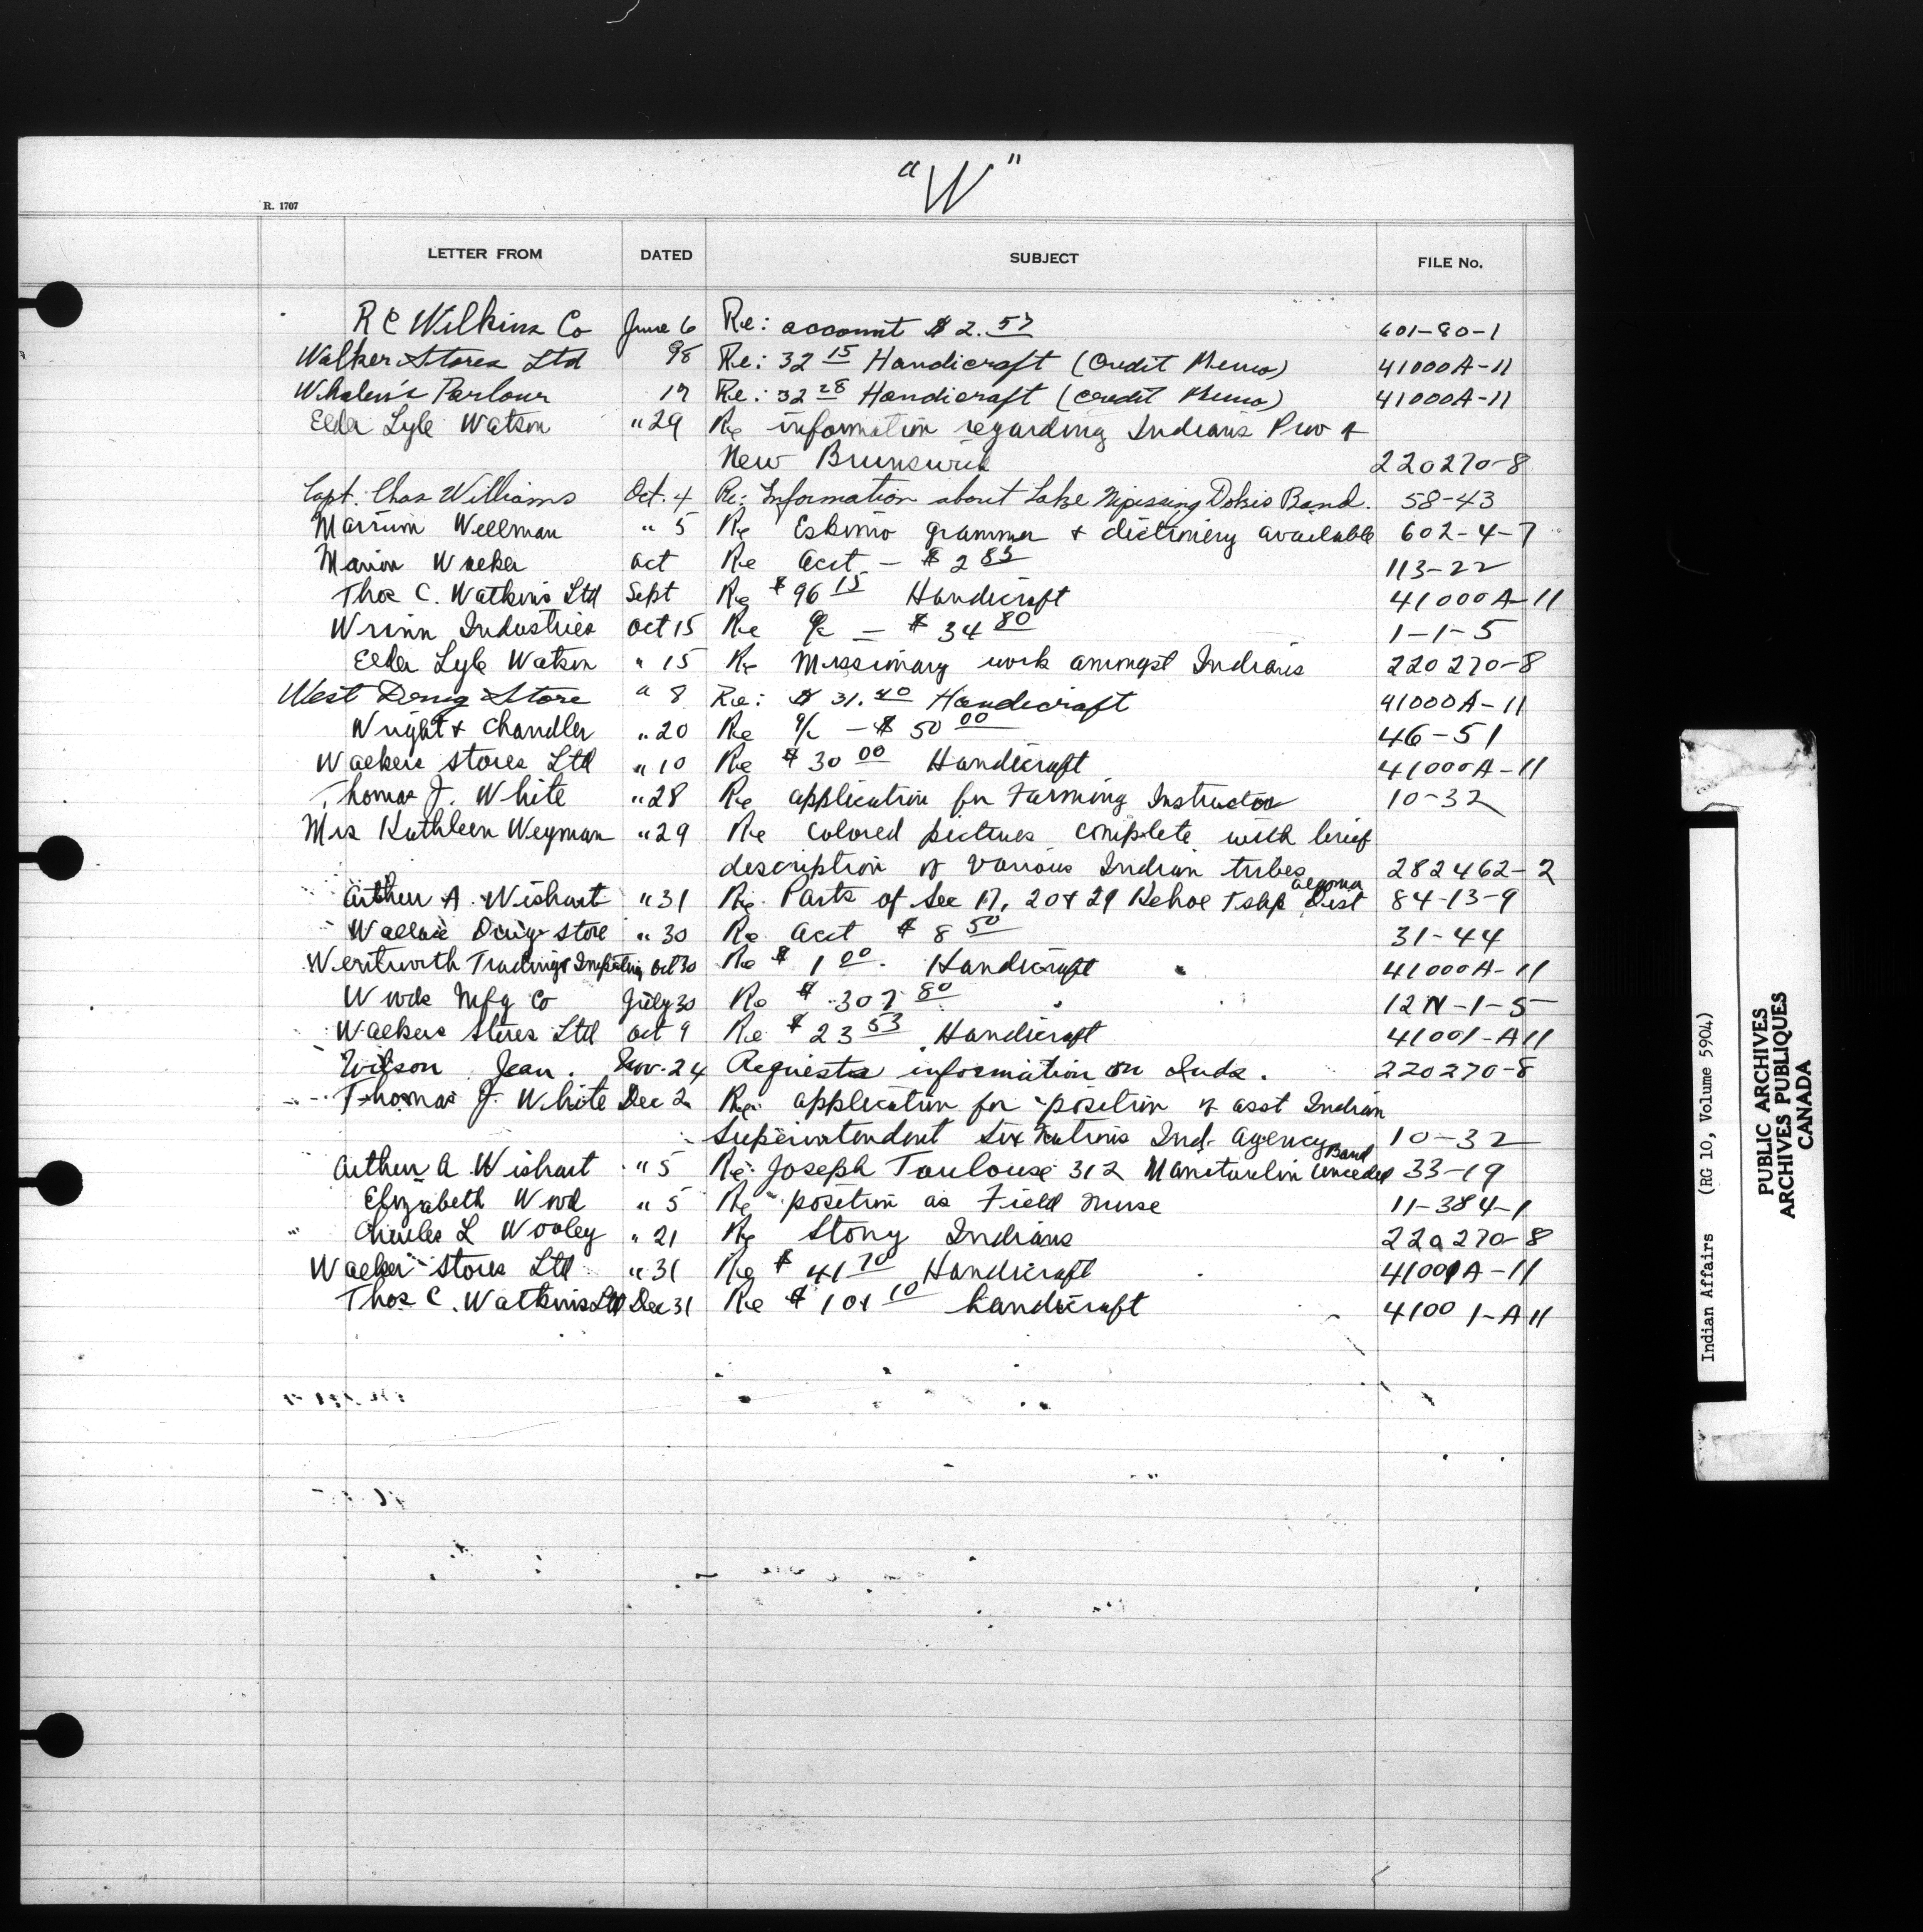 "W"
R. 1707
LETTER FROM DATED SUBJECT FILE No.
R C Wilkins Co June 6 Re: account $2.57 601-80-1
Walker Stores Ltd 98 Re: 32 15 Handicraft (Credit Memo) 41000A-11
Whalen's Parlour 17 Re: 32 28 Handicraft (credit Memo) 41000A-11
Elder Lyle Watson " 29 Re information regarding Indians Prov of
New Brunswick 220270-8
Capt. Chas Williams Oct. 4 Re: Information about Lake Nipissing Dokis Band. 58-43
Marrium Wellman " 5 Re Eskimo grammer & dictionery available 602-4-7
Marion Walker Oct Re Acct - $2 85 113-22
Thos C. Watkins Ltd Sept Re $96 15 Handicraft 41000A-11
Wrinn Industries Oct 15 Re a/c - $34 80 1-1-5
Elder Lyle Watson " 15 Re Missionary work amongst Indians 220270-8
West Drug Store " 8 Re: $31.40 Handicraft 41000A-11
Wright & Chandler " 20 Re a/c - $50 00 46-51
Walkers Stores Ltd " 10 Re $30 00 Handicraft 41000A-11
Thomas J. White " 28 Re application for Farming Instructor 10-32
Mrs Kathleen Weyman " 29 Re colored pictures complete with brief
description of various Indian tribes 282462-2
Arthur A. Wishart " 31 Re Parts of Sec 17, 20 & 29 Kehoe Tshp Algoma Dist 84-13-9
Drug Store " 30 Re Acct $8 50 31-44
Wentworth Trading & Importing Oct 30 Re $1 00. Handicraft 41000A-11
Woods Mfg Co July 30 Re $307 80 12N-1-5
Walkers Stores Ltd Oct 9 Re $23 53 Handicraft 41001-A11
Wilson Jean. Nov. 24 Requests information on Inds. 220270-8
Thomas J. White Dec 2 Re: application for position of asst Indian
Superintendent Six Nations Ind. Agency 10-32
Arthur A Wishart " 5 Re: Joseph Toulouse 312 Manitoulin Unceded Band 33-19
Elizabeth Wood " 5 Re position as Field nurse 11-384-1
Charles L Wooley " 21 Re Stony Indians 220270-8
Walker Stores Ltd " 31 Re $41 70 Handicraft 41001A-11
Thos C. Watkins Ltd Dec 31 Re $101 10 handicraft 41001-A11
Indian Affairs (RG 10, Volume 5904)
PUBLIC ARCHIVES
ARCHIVES PUBLIQUES
CANADA